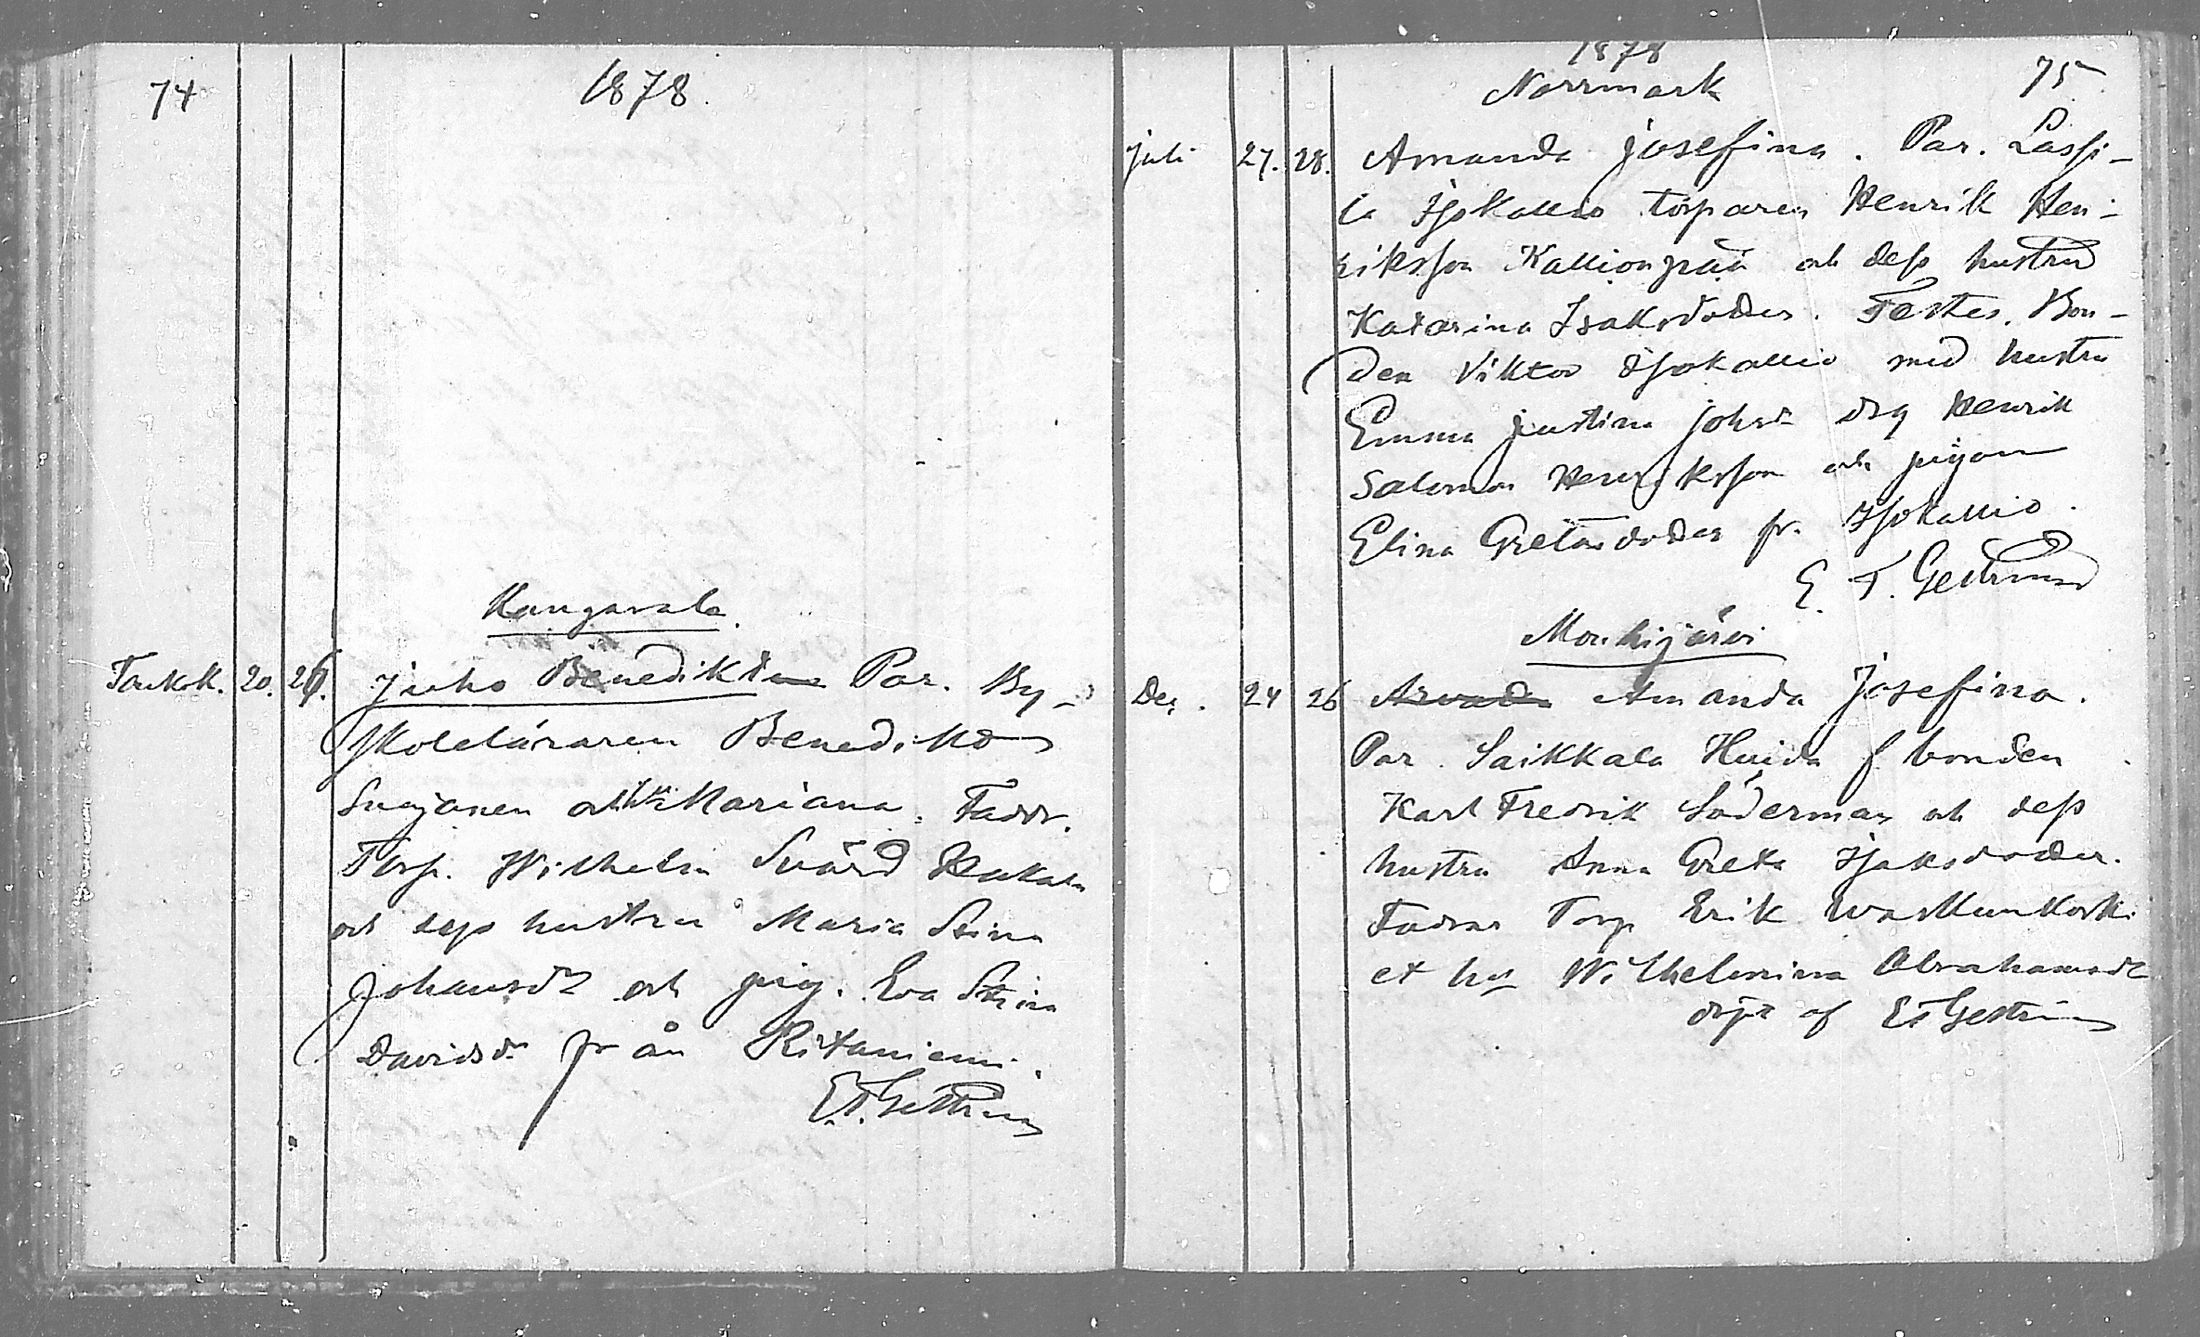 74
1878.
Kangasala.
Toukok. 20. 26. Juho Benediktus Par. By-
skoleläraren Benedikt
Suojanen och h. Mariana. Faddr.
Torp. Wilhelm Svärd Hakala
och dess hustru Maria Stina
Johansdr och pig. Eva Stina
Davidsdr från Ritaniemi.
E. T. Gestrin
1878
Norrmark
75
Juli 27. 28. Amanda Josefina. Par. Lassi-
la Isokallio torparen Henrik Hen-
riksson Kallionpää och dess hustru
Katarina Isaksdotter. Testes. Bon-
den Viktor Isokallio med hustru
Emma Justina Johsd. drg Henrik
Salomon Henriksson och pigan
Elina Gretasdotter fr. Isokallio.
E. T. Gestrin
Mouhijärvi
Dec. 24 26 Amanda Josefina.
Par. Saikkala Huida f bonden
Karl Fredrik Söderman och dess
hustru Anna Greta Isaksdotter.
Fadrar Torp Erik
et hu Wilhelmina Abrahamsdr
döpt af E T Gestrin